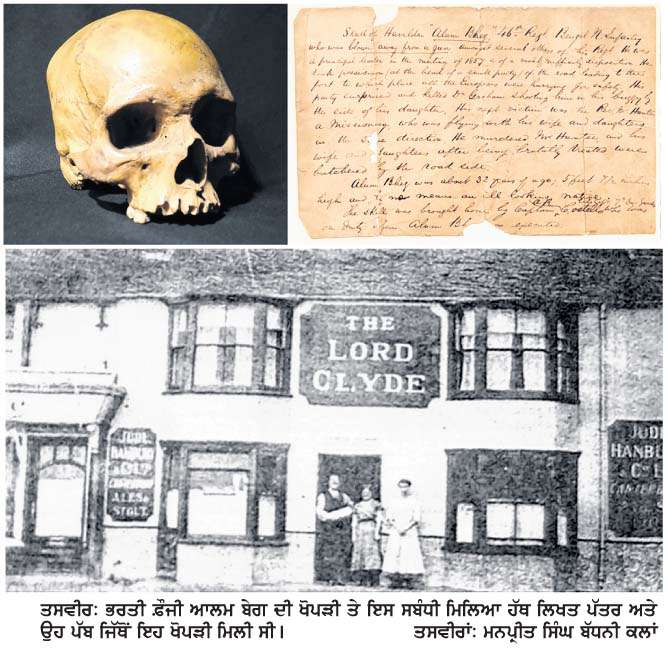 Skull of Havildar "Alum Bheg" 46th Regt Bengal N. Infantry
who was blown away from a gun amongst several others of his Regt. He was
a principal leader in the mutiny of 1857 & of a most ruffianly disposition. He
took possession (at the head of a small party) of the road leading to the
fort to which place all the Europeans were hurrying for safety. His
party surprised and killed Dr. Graham shooting him in his buggy by
the side of his daughter. His next victim was the Rev. Mr. Hunter
a Missionary who was flying with his wife and daughters
in the same direction. He murdered Mr Hunter and his
wife and daughters after being brutally treated were
butchered by the road side.
Alum Bheg was about 32 years of age, 5 feet 7 1/2 inches
high and by no means an ill looking native.
The skull was brought home by Captain
on duty when Alum Bheg was executed
THE
LORD
CLYDE
JUDE
HANBURY
& CO LD
CANTERBURY
ALES &
STOUT
JUD
HANBU
& Co L
CANTER
ਤਸਵੀਰ: ਭਰਤੀ ਫ਼ੌਜੀ ਆਲਮ ਬੇਗ ਦੀ ਖੋਪੜੀ ਤੇ ਇਸ ਸਬੰਧੀ ਮਿਲਿਆ ਹੱਥ ਲਿਖਤ ਪੱਤਰ ਅਤੇ
ਉਹ ਪੱਬ ਜਿੱਥੋਂ ਇਹ ਖੋਪੜੀ ਮਿਲੀ ਸੀ। ਤਸਵੀਰਾਂ: ਮਨਪ੍ਰੀਤ ਸਿੰਘ ਬੱਧਨੀ ਕਲਾਂ